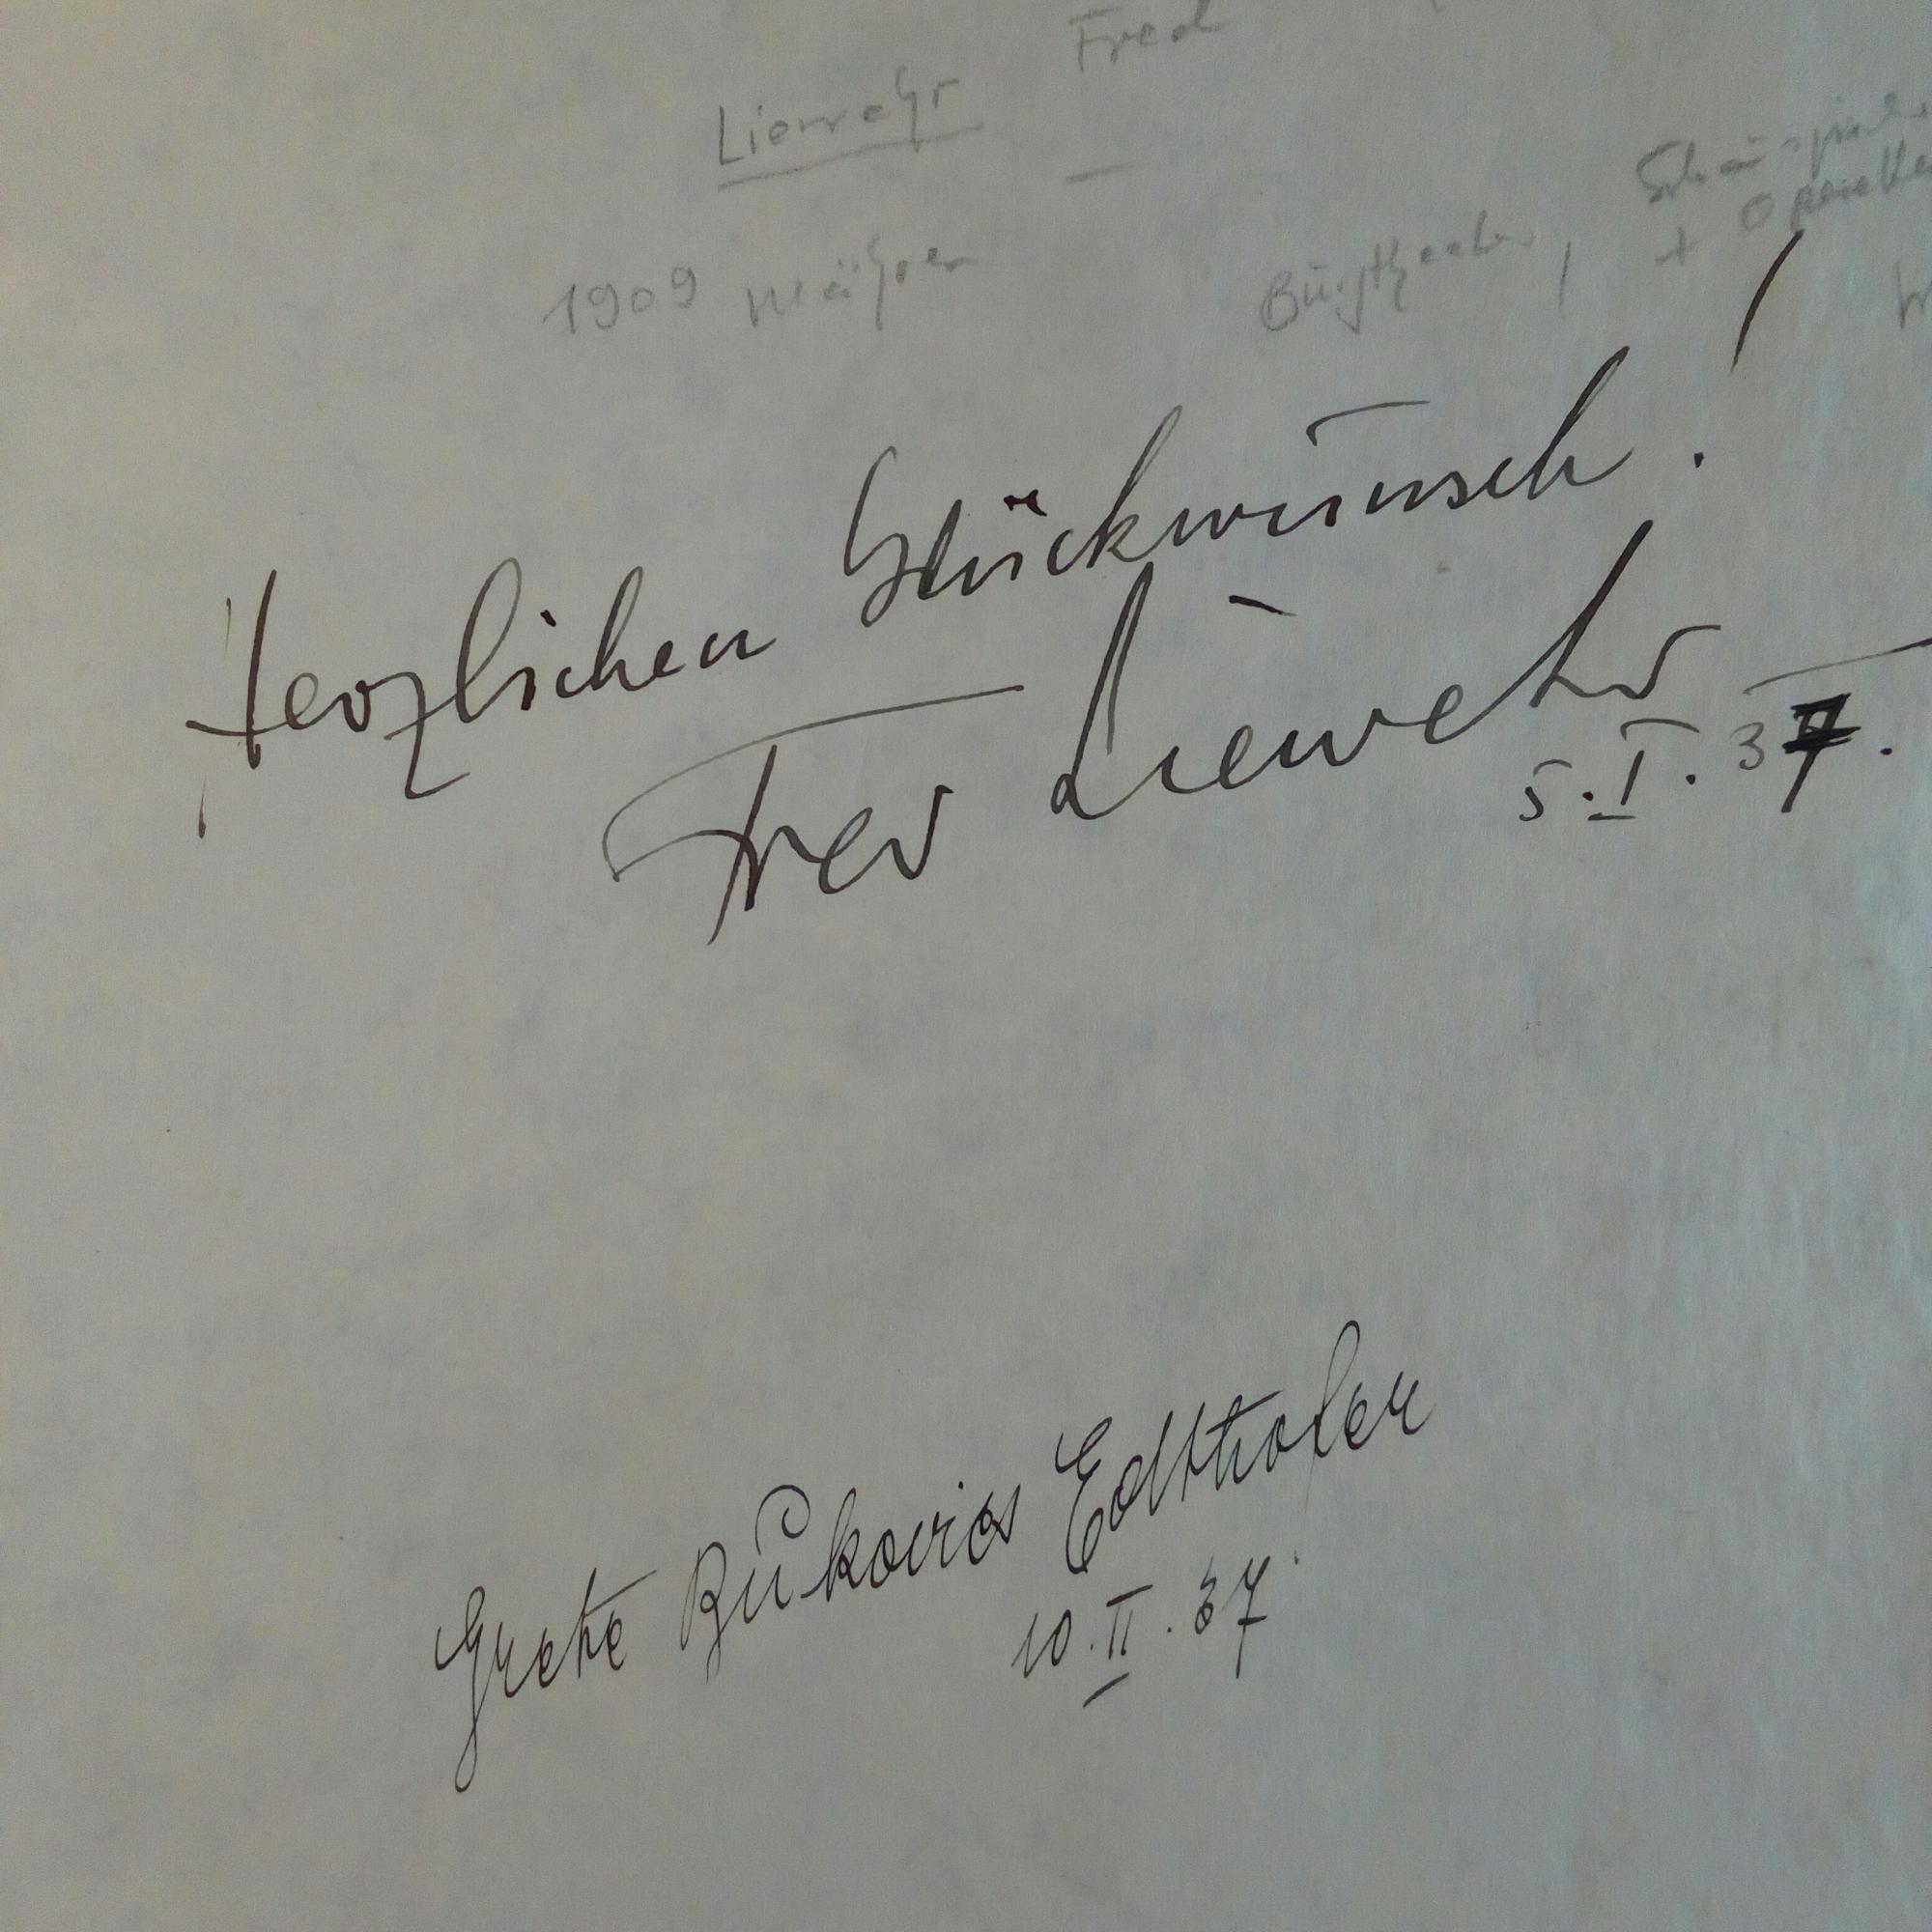 Liewehr Fred
1909 Mähren Burgtheater, Schauspieler
+ Operette
Herzlichen Glückwunsch!
Fred Liewehr
5.I.37.
Grete Bukovics Edthofer
10.II.37